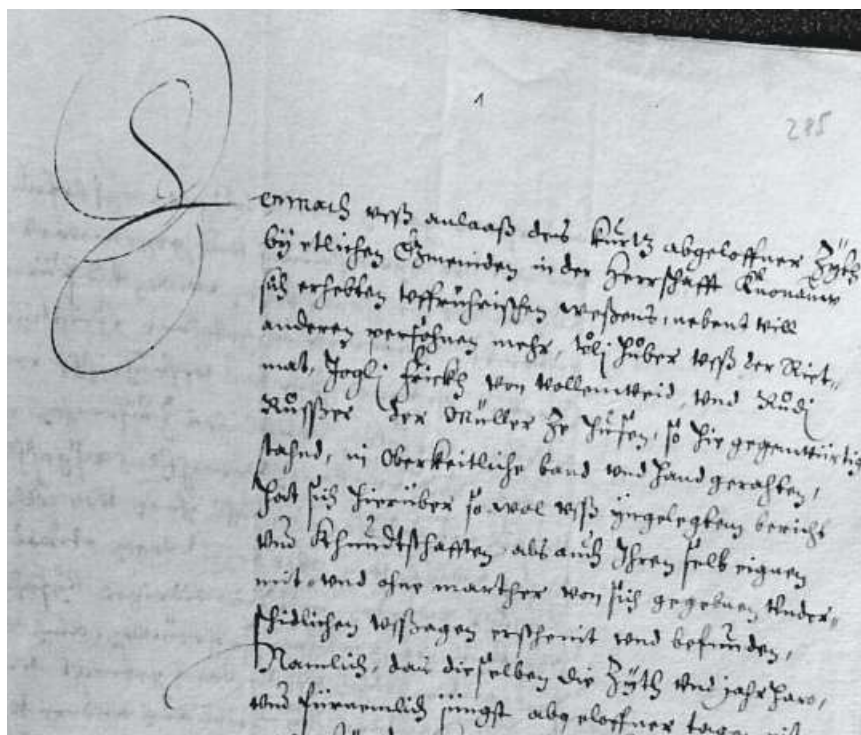 1
285
Demnach uß anlaaß des kurtz abgeloffner Zyth
by etlichen Gmeinden in der Herrschafft Knonauw
sich erhebten uffrührischen weßens, nebent vill
anderen persohnen mehr, Uli Huber uß der Riet¬
mat, Jogli Frickh von Vollenweid, und Rudi
Russer der Müller ze Husen, so hie gegenwürtig
stahnd, in Oberkeitliche band und hand gerahten,
hat sich hierüber so wol uß yngelegtem bericht
und Khundtschafften als auch Ihren selb eignen
mit und ohne marther von sich gegebnen Under¬
schidlichen ußsagen erscheint und befunden,
Namlich, das dieselben die Zyth und jahr haro,
und fürnemlich jüngst abgeloffner tagen